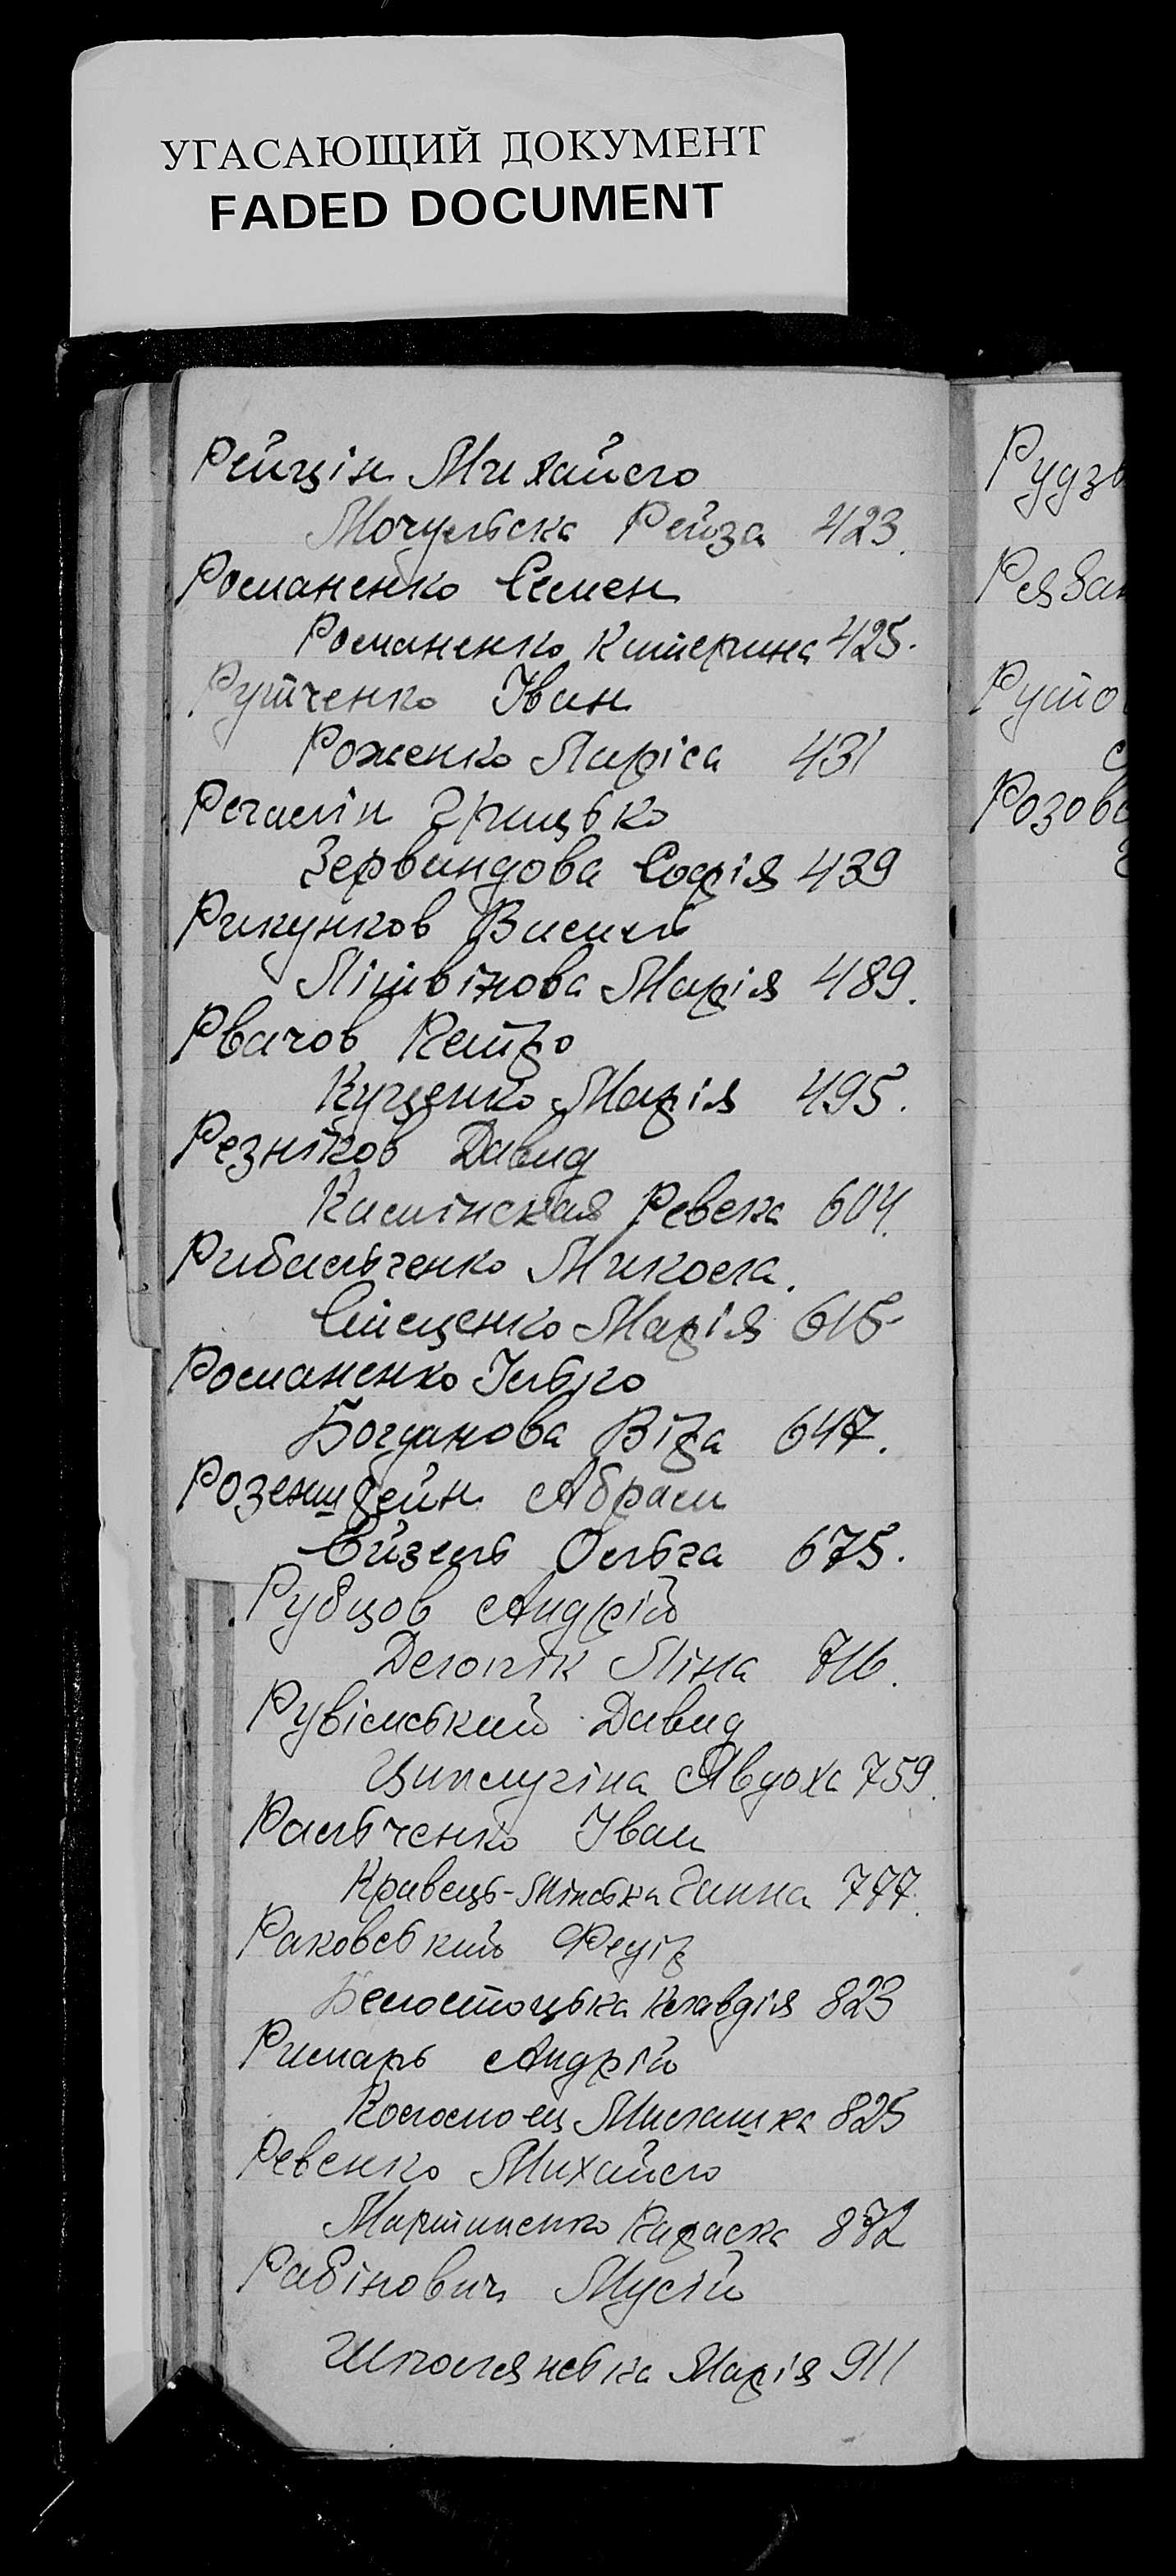 УГАСАЮЩИЙ ДОКУМЕНТ
FADED DOCUMENT
Рейцін Михайло
Мочульска Рейза 423.
Романенко Семен
Романенко Катерина 425.
Рутченко Іван
Роженко Лариса 431
Регалін Грицько
Зервандова Софія 439
Рикунков Василь
Літвінова Марія 489.
Рвачов Петро
Куценко Марія 495.
Резніков Давид
Камінская Ревека 604.
Рибальченко Микола.
Марія 615
Романенко Ілько
Богданова Віра 647.
Розенштейн Абрам
Айзель Ольга 675.
Рубцов Андрій
Ліна 716.
Рувімський Давид
Явдоха 759.
Ральченко Іван
Кравець-Мінська Ганна 777.
Раковський Федір
Белостоцька Клавдія 823
Римарь Андрій
Мілашка 825
Ревенко Михайло
Мартиненко Параска 872
Рабінович Мусій
Шполянська Марія 911
Рудзь
Руто
Розов